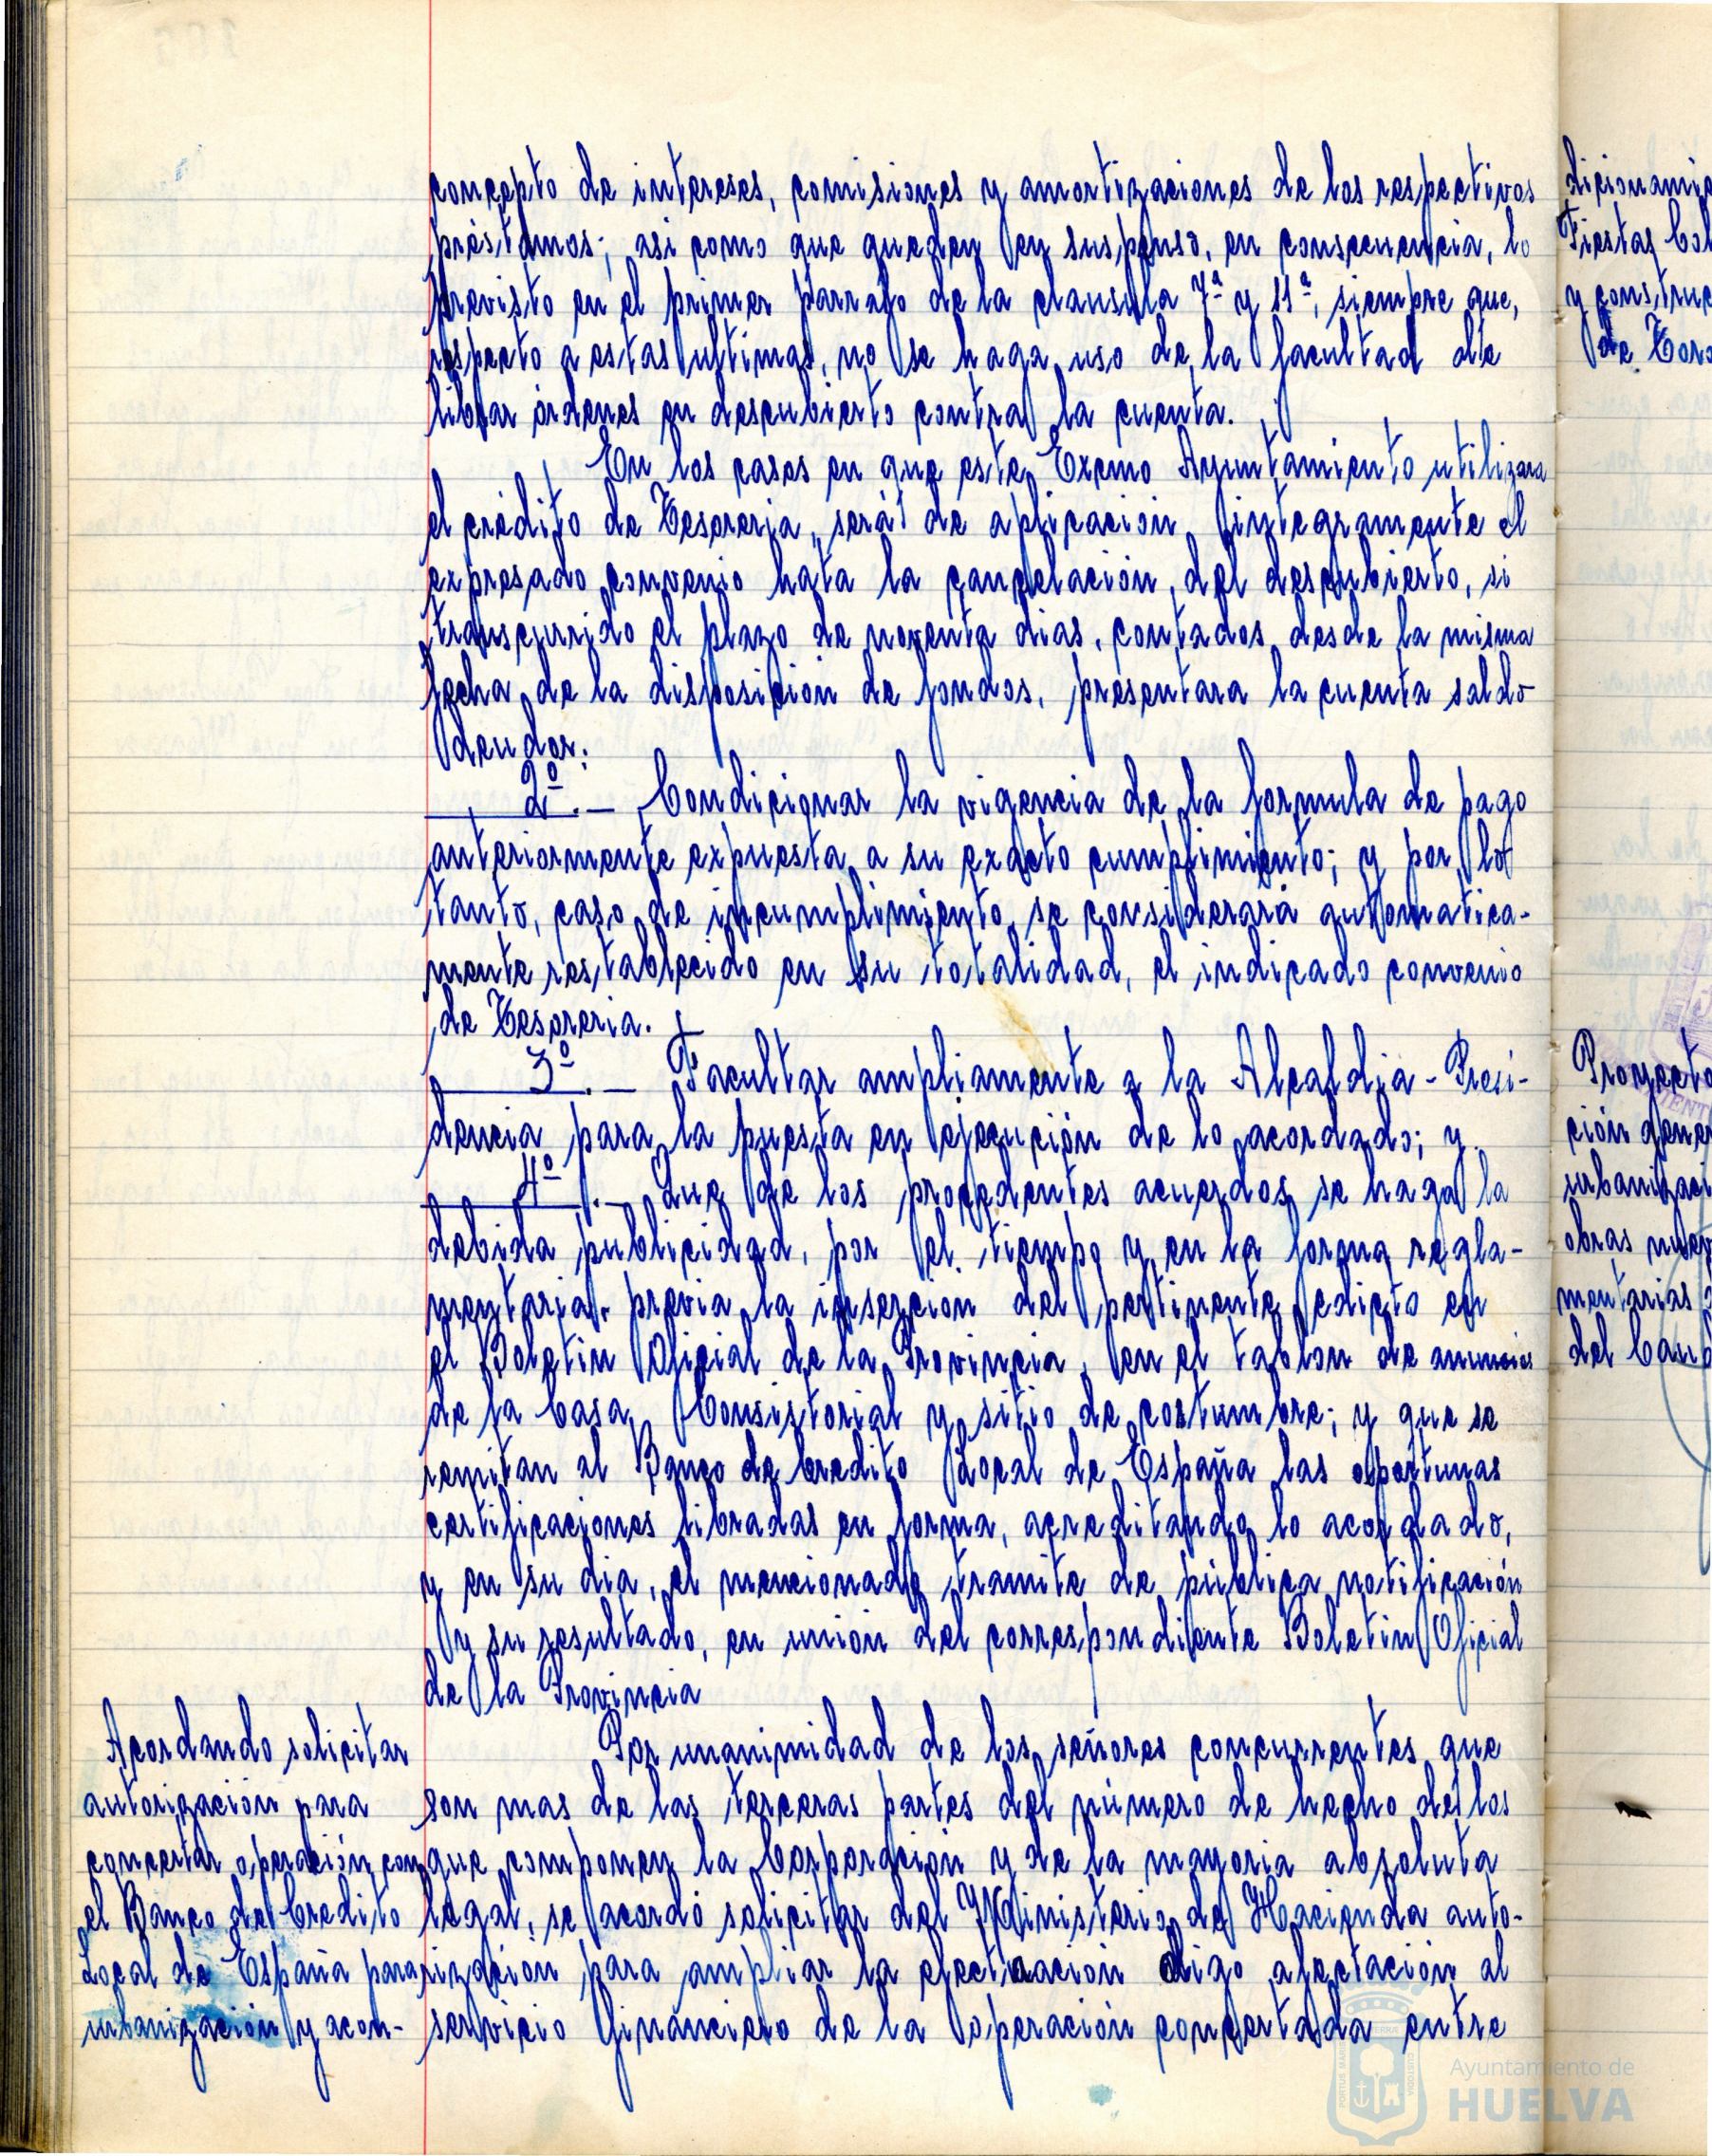 concepto de intereses, comisiones y amortizaciones de los respectivos
préstamos; asi como que queden en suspenso, en consecuencia, lo
previsto en el primer parrafo de la clausula 7ª y 11ª, siempre que,
respecto a estas ultimas, no se haga uso de la facultad de
librar órdenes en descubierto contra la cuenta.
En los casos en que este Excmo Ayuntamiento utilizara
el crédito de Tesoreria, será de aplicación integramente el
expresado convenio hata la cancelación del descubierto, si
transcurrido el plazo de noventa dias, contados desde la misma
fecha de la disposición de fondos, presentara la cuenta saldo
deudor.
2º.— Condicionar la vigencia de la formula de pago
anteriormente expuesta a su exacto cumplimiento; y por lo
tanto, caso de incumplimiento se considerará automatica-
mente restablecido en su totalidad, el indicado convenio
de Tesoreria.
3º.— Facultar ampliamente a la Alcaldia-Presi-
dencia para la puesta en ejecución de lo acordado; y
4º.— Que de los procedentes acuerdos se haga la
debida publicidad, por el tiempo y en la forma regla-
mentaria, previa la inserción del pertinente edicto en
el Boletin Oficial de la Provincia, en el tablon de anuncios
de la Casa Consistorial y sitio de costumbre; y que se
remitan al Banco de Credito Local de España las oportunas
certificaciones libradas en forma, acreditando lo acordado,
y en su dia, el mencionado tramite de pública notificación
y su resultado, en unión del correspondiente Boletin Oficial
de la Provincia
Acordando solicitar
autorización para
concertar operación con
el Banco de Credito
Local de España para
urbanización y acon-
Por unanimidad de los señores concurrentes que
son mas de las terceras partes del número de hecho de los
que componen la Corporación y de la mayoria absoluta
legal, se acordó solicitar del Ministerio de Hacienda auto-
rización para ampliar la efectuación digo afectación al
servicio financiero de la operación concertada entre
dicionamie
Fiestas Col
y construc
de Toro
Proyecto
ción gener
urbanizaci
obras
mentarias
del
Ayuntamiento de
HUELVA